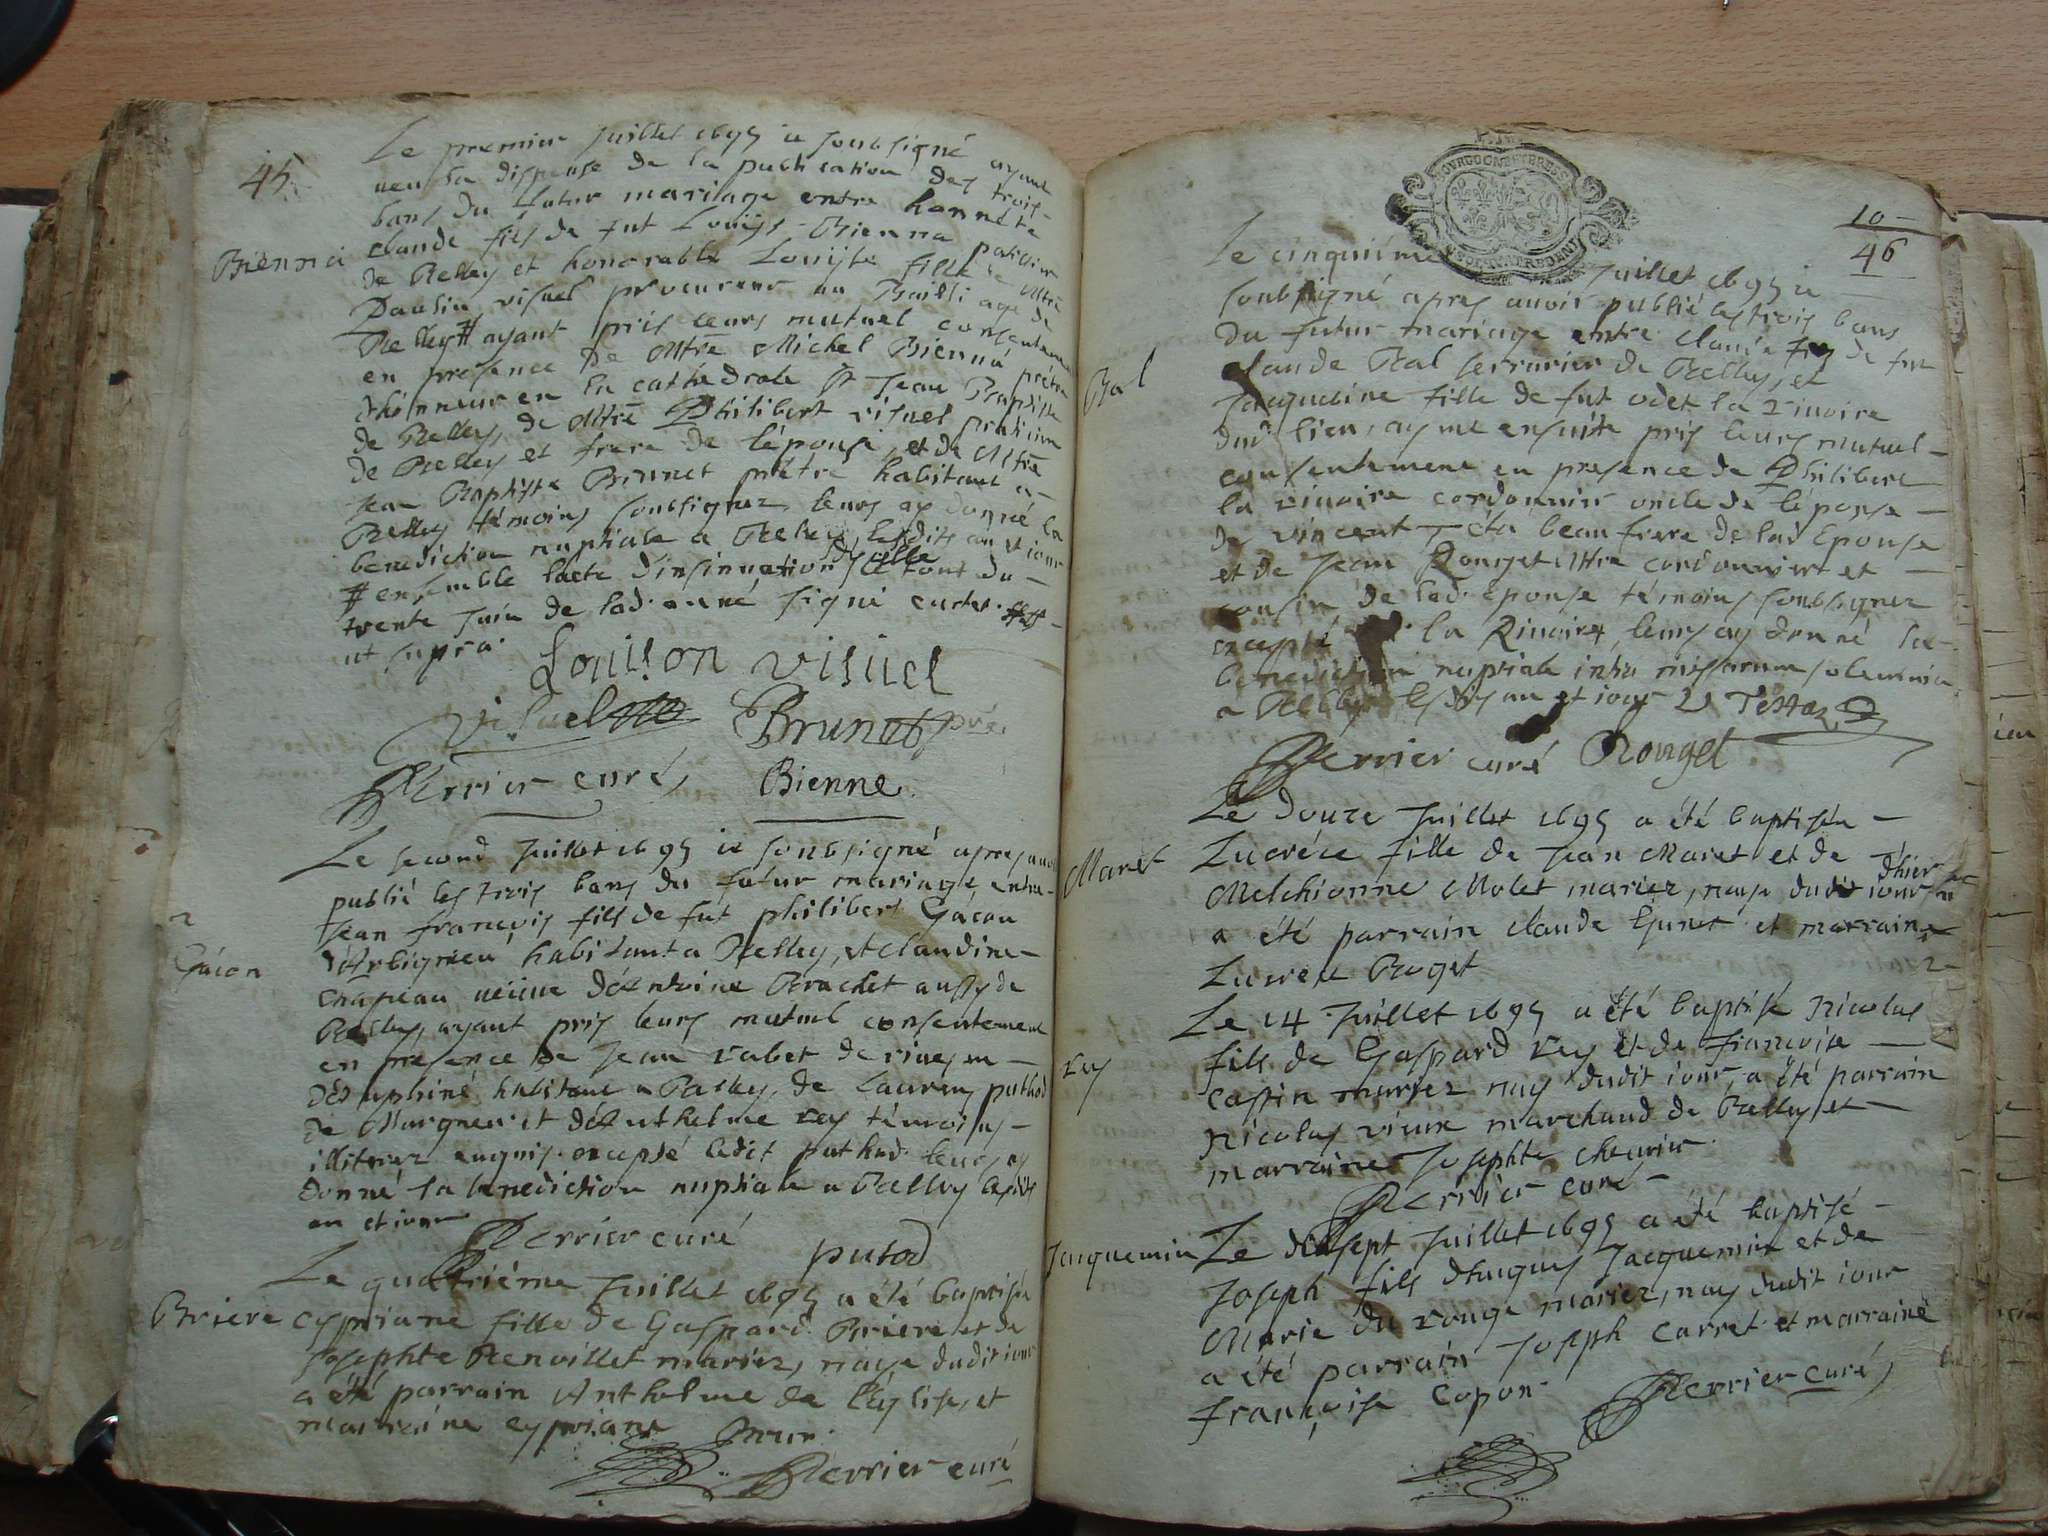 45
Le premier Juillet 1695 ie soubsigné ayant
veu la dispense de la publication des trois
bans du futur mariage entre honnete
Bienna claude fils de fut Louijs Bienna patissier
de Belley et honorable Louijse fille de Mtre
visuel procureur au Bailliage de
Belley # ayant pris leurs mutuel consentement
en presence de Mtre Michel Bienna prétre
d'honneur en la cathedrale St Jean Baptiste
de Belley, de Mtre Philibert visuel praticien
de Belley et frere de l'épouse, et de Mtre
Jean Baptiste Brunet prêtre habitant a
Belley témoins soubsignez leurs ay donné la
benediction nuptiale a Belley, lesdits an et iour
# ensemble lacte d'insinuation d'icelle le tout du
trente Juin de lad. anné signé
ut supra.
Louison visuel
Visuel Brunet pre.
Perrier curé, Bienne
Le second Juillet 1695 ie soubsigné apres avoir
publié les trois bans du futur mariage entre
Jean françois fils de fut philibert Gácon
Gácon d'Arbignieu habitant a Belley, et claudine
chapeau veüve d'Antoine Brachet aussy de
Belley, ayant pris leurs mutuel consentement
en présence de Jean rabet de
Dauphiné habitant a Belley, de Laurens puthod
de Margneu et d'Anthelme rey témoins
illiterez enquis excepté ledit puthod leurs ay
donné la benediction nuptiale a Belley lesdits
an et iour
Perrier curé putod
Le quatriéme Juillet 1695 a été baptisée
Briere cypriane fille de Gaspard Briere et de
Josephte Renvillet mariez, naye dudit iour
a été parrain Anthelme de l'église, et
marraine cypriane Brun.
Perrier curé
10
46
Le cinquiéme Juillet 1695 ie
soubsigné apres avoir publié les trois bans
du futur mariage entre claude fils de fut
Bal claude Bal serrurier de Belley, et
Jacqueline fille de fut odet la rivoire
dud. lieu, ayant ensuite pris leurs mutuel
consentement en presence de Philibert
la rivoire cordonnier oncle de l'épouse
de vincent beau frere de lad. Epouse
et de Jean Rouget Mtre cordonnier et
cousin de lad. épouse témoins soubsignez
excepté la Rivoire, leurs ay donné la
benediction nuptiale intra missarum solemnia
a Belley lesdits an et iour V Testaz
Perrier curé Rouget
Le douze Juillet 1695 a été baptisée
Maret Lucréce fille de Jean Maret et de
Melchionne Molet mariez, naye dudit iour d'hier
a été parrain claude Guret et marraine
Lucréce Roget
Le 14 Juillet 1695 a été baptisé Nicolas
rey fils de Gaspard rey et de françoise
cassin mariez nay dudit iour, a été parrain
Nicolas vieux marchand de Belley et
marraine Josephte chevrier.
Perrier curé
Jacquemin Le dixsept Juillet 1695 a été baptisé
Joseph fils d'hugues Jacquemin et de
Marie du rouge mariez, nay dudit iour
a été parrain Joseph carret et marraine
françoise copon.
Perrier curé